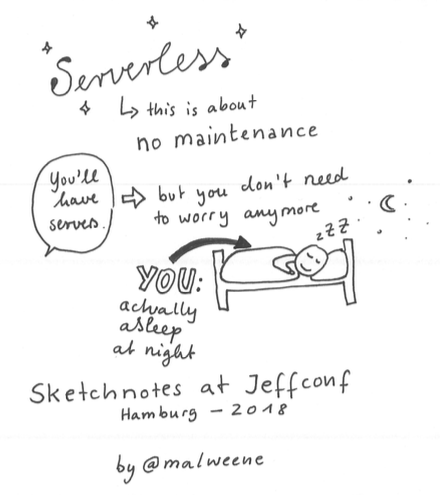 Serverless
↳ this is about
no maintenance
You'll
have
serves.
⇨ but you don't need
to worry anymore
zZZ
YOU:
actually
asleep
at night
Sketchnotes at Jeffconf
Hamburg - 2018
by @malweene